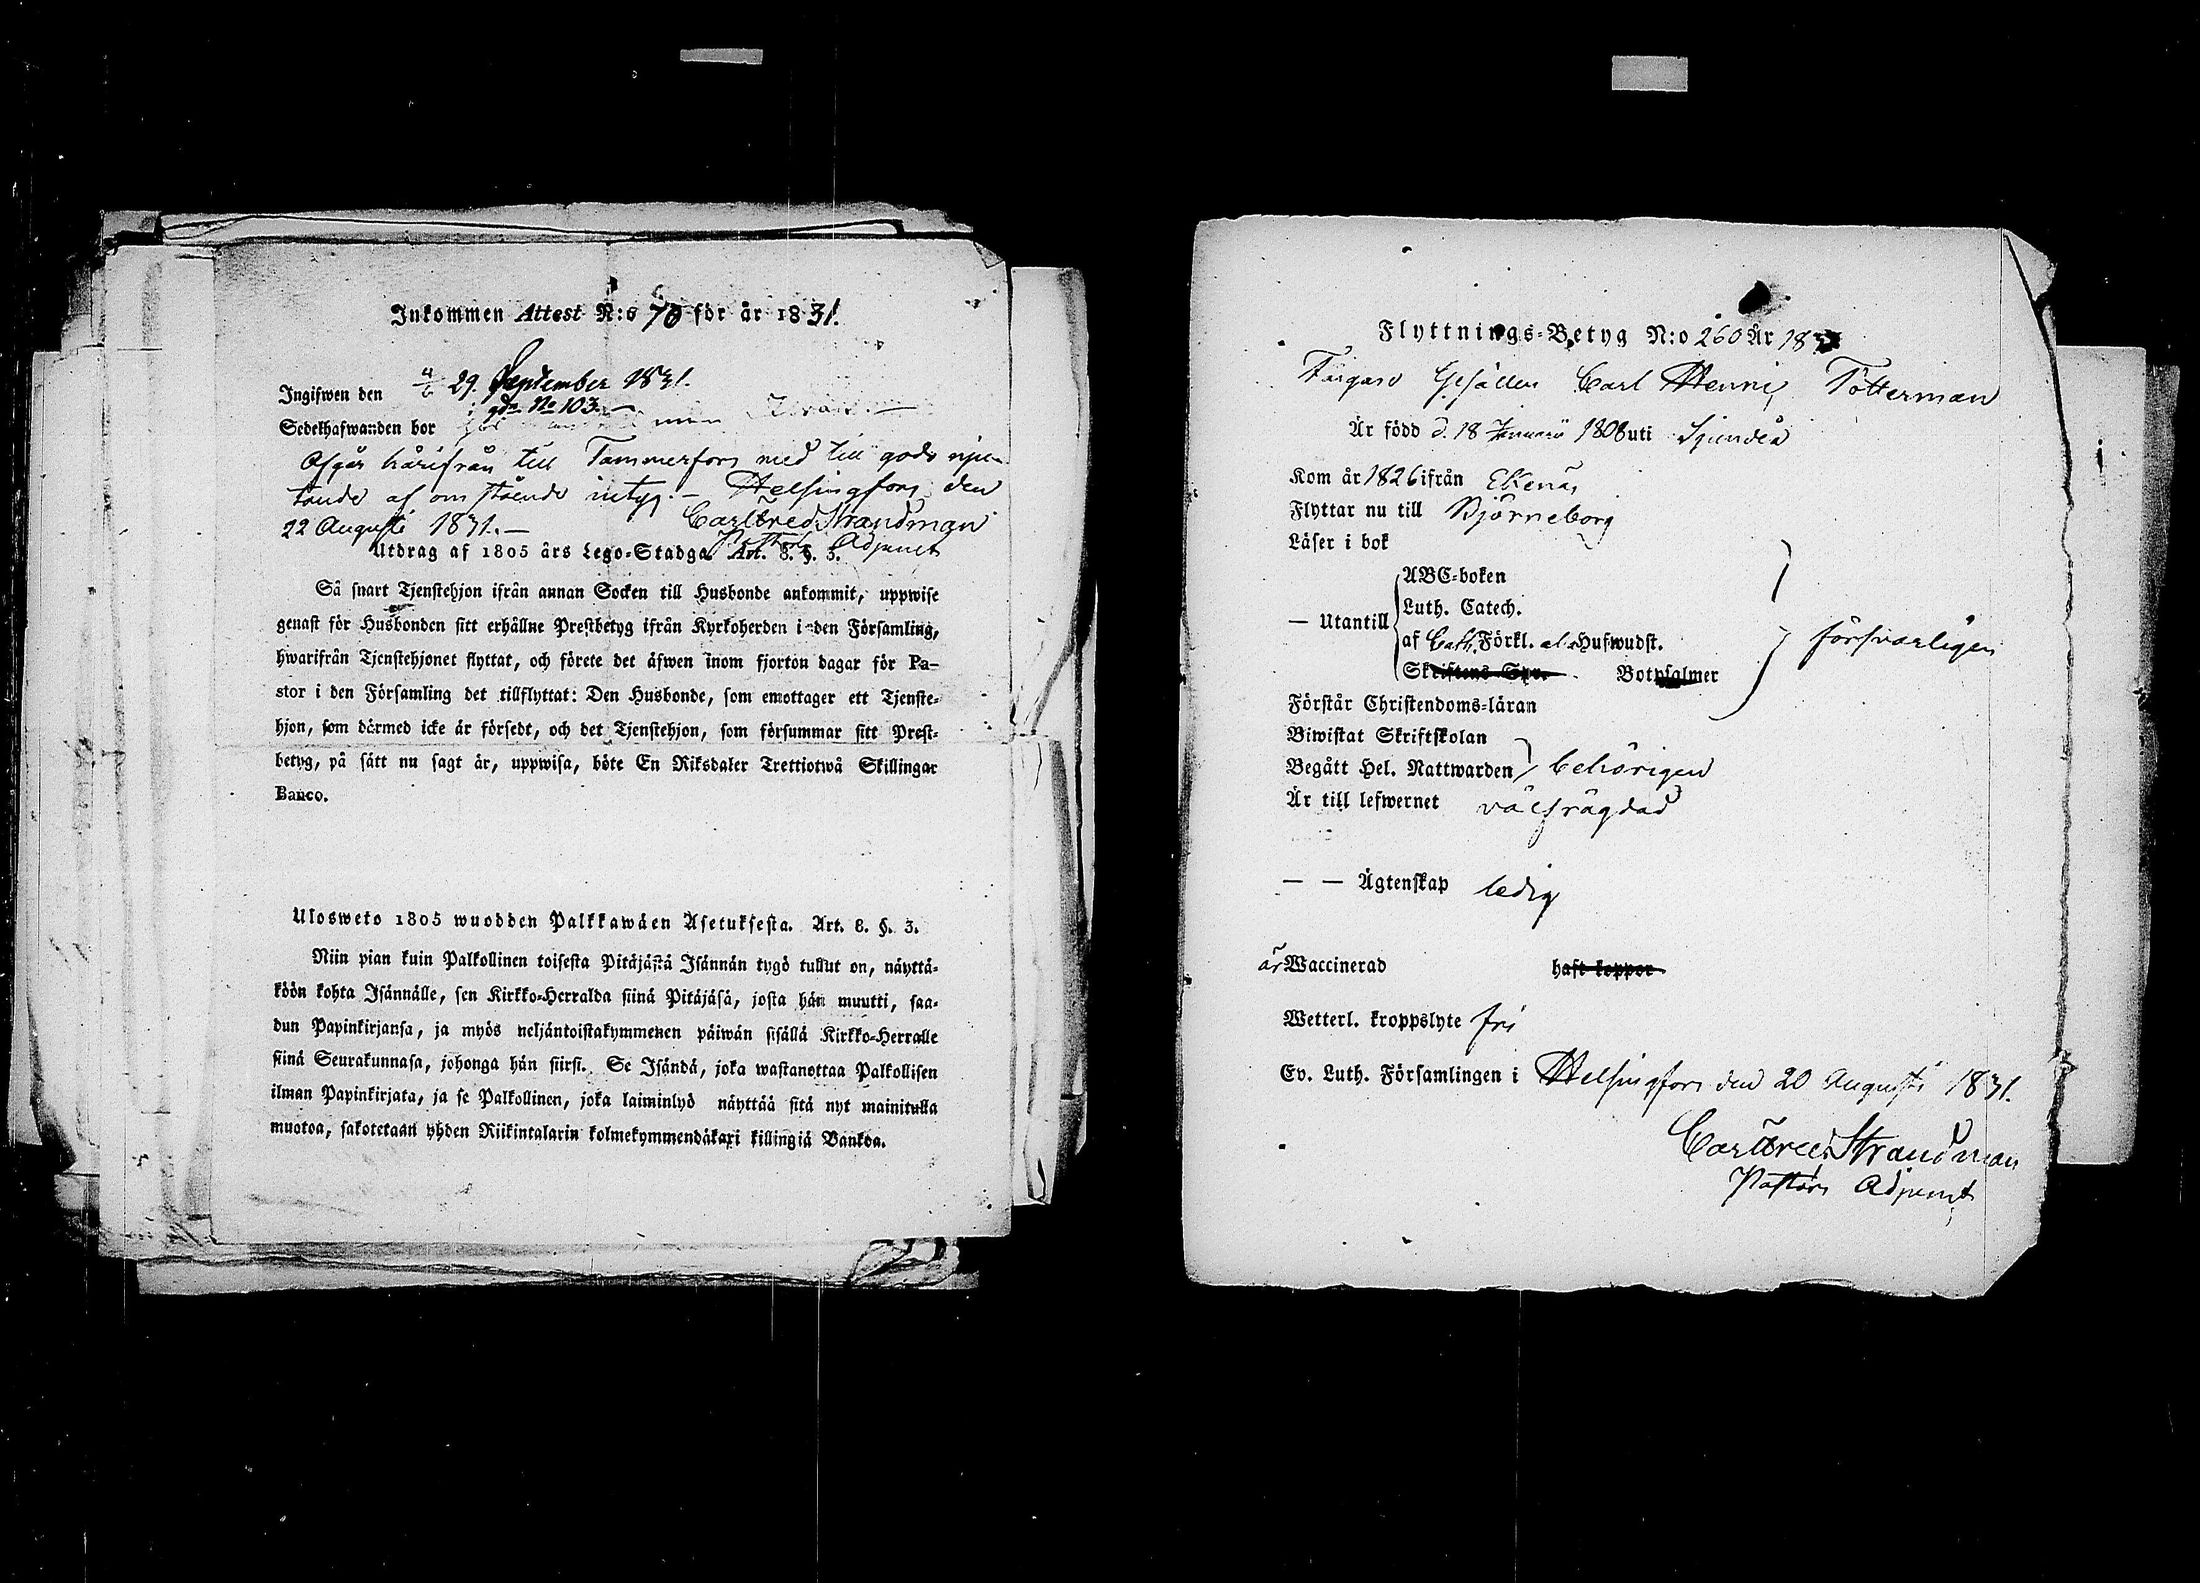 Inkommen Attest N:o 70 för år 1831.
Ingifwen den 29. September 1831.
i gda No 103.
Sedelhafwanden bor
Afgår härifrån till Tammerfors med till godo nju-
tande af omstående intyg. – Helsingfors den
22 Augusti 1831. – Carl Fred. Strandman
Pastors Adjunct
Utdrag af 1805 års Lego-Stadga Art. 8. §. 3.
Så snart Tjenstehjon ifrån annan Socken till Husbonde ankommit, uppwise
genast för Husbonden sitt erhållne Prestbetyg ifrån Kyrkoherden i den Församling,
hwarifrån Tjenstehjonet flyttat, och förete det äfwen inom fjorton dagar för Pa-
stor i den Församling det tillflyttat: Den Husbonde, som emottager ett Tjenste-
hjon, som dermed icke är försedt, och det Tjenstehjon, som försummar sitt Prest-
betyg, på sätt nu sagt är, uppwisa, böte En Riksdaler Trettiotwå Skillingar
Banco.
Ulosweto 1805 wuodden Palkkawäen Asetuksesta. Art. 8. §. 3.
Niin pian kuin Palkollinen toisesta Pitäjästä Isännän tygö tullut on, näyttä-
köön kohta Isännälle, sen Kirkko-Herralda siinä Pitäjäsä, josta hän muutti, saa-
dun Papinkirjansa, ja myös neljäntoistakymmenen päiwän sisällä Kirkko-Herralle
siinä Seurakunnasa, johonga hän siirsi. Se Isändä, joka wastanottaa Palkollisen
ilman Papinkirjata, ja se Palkollinen, joka laiminlyö näyttää sitä nyt mainitulla
muotoa, sakotetaan yhden Riikintalarin kolmekymmendäkaxi killingiä Bankoa.
Flyttnings-Betyg N:o 260 År 183
Färgare Gesällen Carl Henric Tötterman
Är född d. 18 Januarii 1808 uti Sjundeå
Kom år 1826 ifrån Ekenäs
Flyttar nu till Björneborg
Läser i bok
ABC-boken
Luth. Catech.
— Utantill
af Cath. Förkl. Hufwudst.
Skriftens Spr. Botpsalmer
försvarligen
Förstår Christendoms-läran
Biwistat Skriftskolan
Begått Hel. Nattwarden behörigen
Är till lefwernet välfrägdad
— — Ägtenskap ledig
är Waccinerad haft koppor
Wetterl. kroppslyte fri
Ev. Luth. Församlingen i Helsingfors den 20 Augusti 1831.
Carl Fred. Strandman
Pastors Adjunct